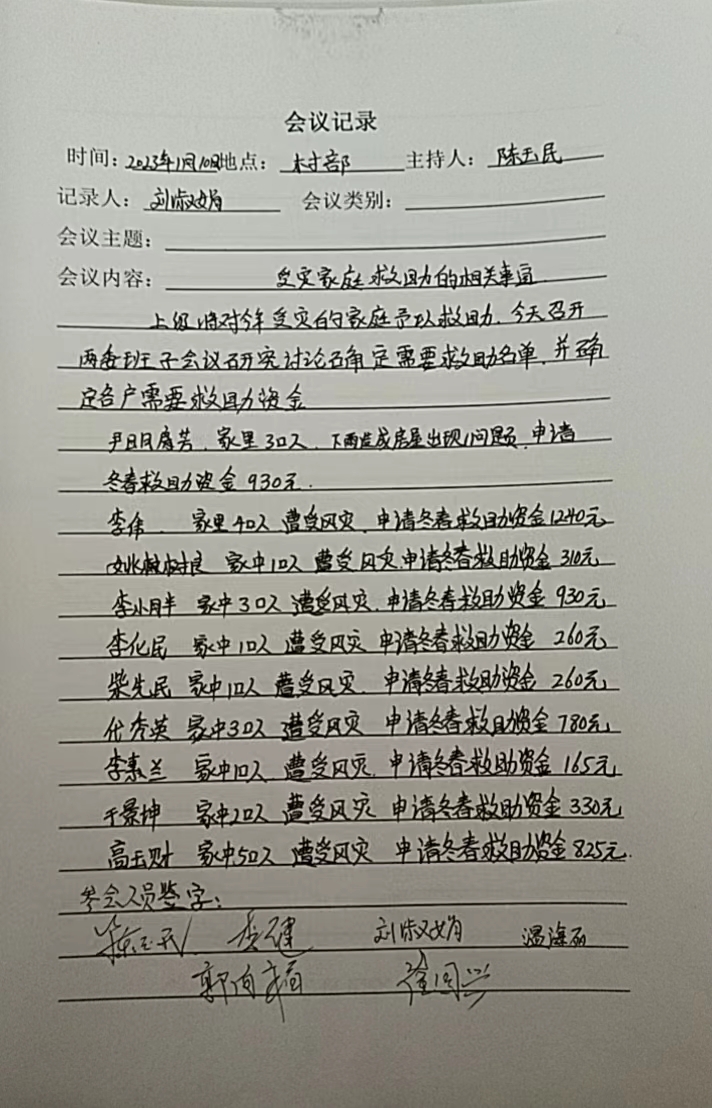 会议记录
时间：2023年1月10日地点：村部 主持人：陈玉民
记录人：刘淑娟 会议类别：
会议主题：
会议内容： 受灾家庭救助的相关事宜
上级将对今年受灾的家庭予以救助，今天召开
两委班子会议研究讨论确定需要救助名单，并确
定各户需要救助资金
家里3口人，下雨造成房屋出现问题，申请
冬春救助资金930元．
李伟． 家里4口人 遭受风灾，申请冬春救助资金1240元
姚树良 家中1口人 遭受风灾，申请冬春救助资金 310元
李小胖 家中3口人 遭受风灾，申请冬春救助资金 930元
李化民 家中1口人 遭受风灾 申请冬春救助资金 260元
柴先民 家中1口人 遭受风灾．申请冬春救助资金 260元
代秀英 家中3口人 遭受风灾 申请冬春救助资金 780元
李惠兰 家中1口人 遭受风灾，申请冬春救助资金 165元
于景坤 家中2口人 遭受风灾 申请冬春救助资金 330元
高玉财 家中5口人 遭受风灾 申请冬春救助资金 825元．
参会人员签字：
陈玉民 刘淑娟 温海丽
徐国兴